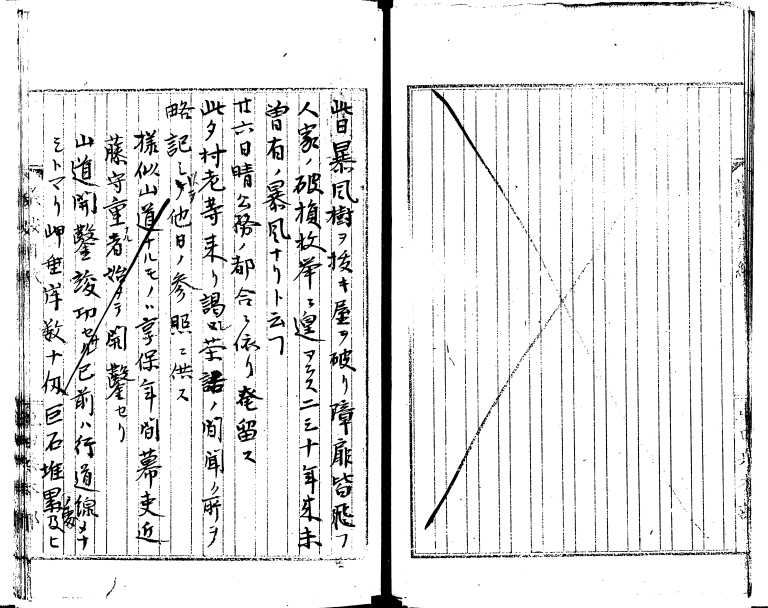 此日暴風樹ヲ抜キ屋ヲ破リ障扉皆飛フ
人家ノ破損枚挙ニ遑アラス二三十年来未
曽有ノ暴風ナリト云フ
廿六日晴公務ノ都合ニ依リ滞留ス
此夕村老等来リ謁ス茶話ノ間聞ク所ヲ
略記シテ他日ノ参照ニ供ス
様似山道ナルモノハ享保年間幕吏近
藤守重者始メテ開鑿セリ
山道開鑿竣功セル已前ハ行道線
ミトマリ岬垂岸数十仭巨石堆累及ヒ